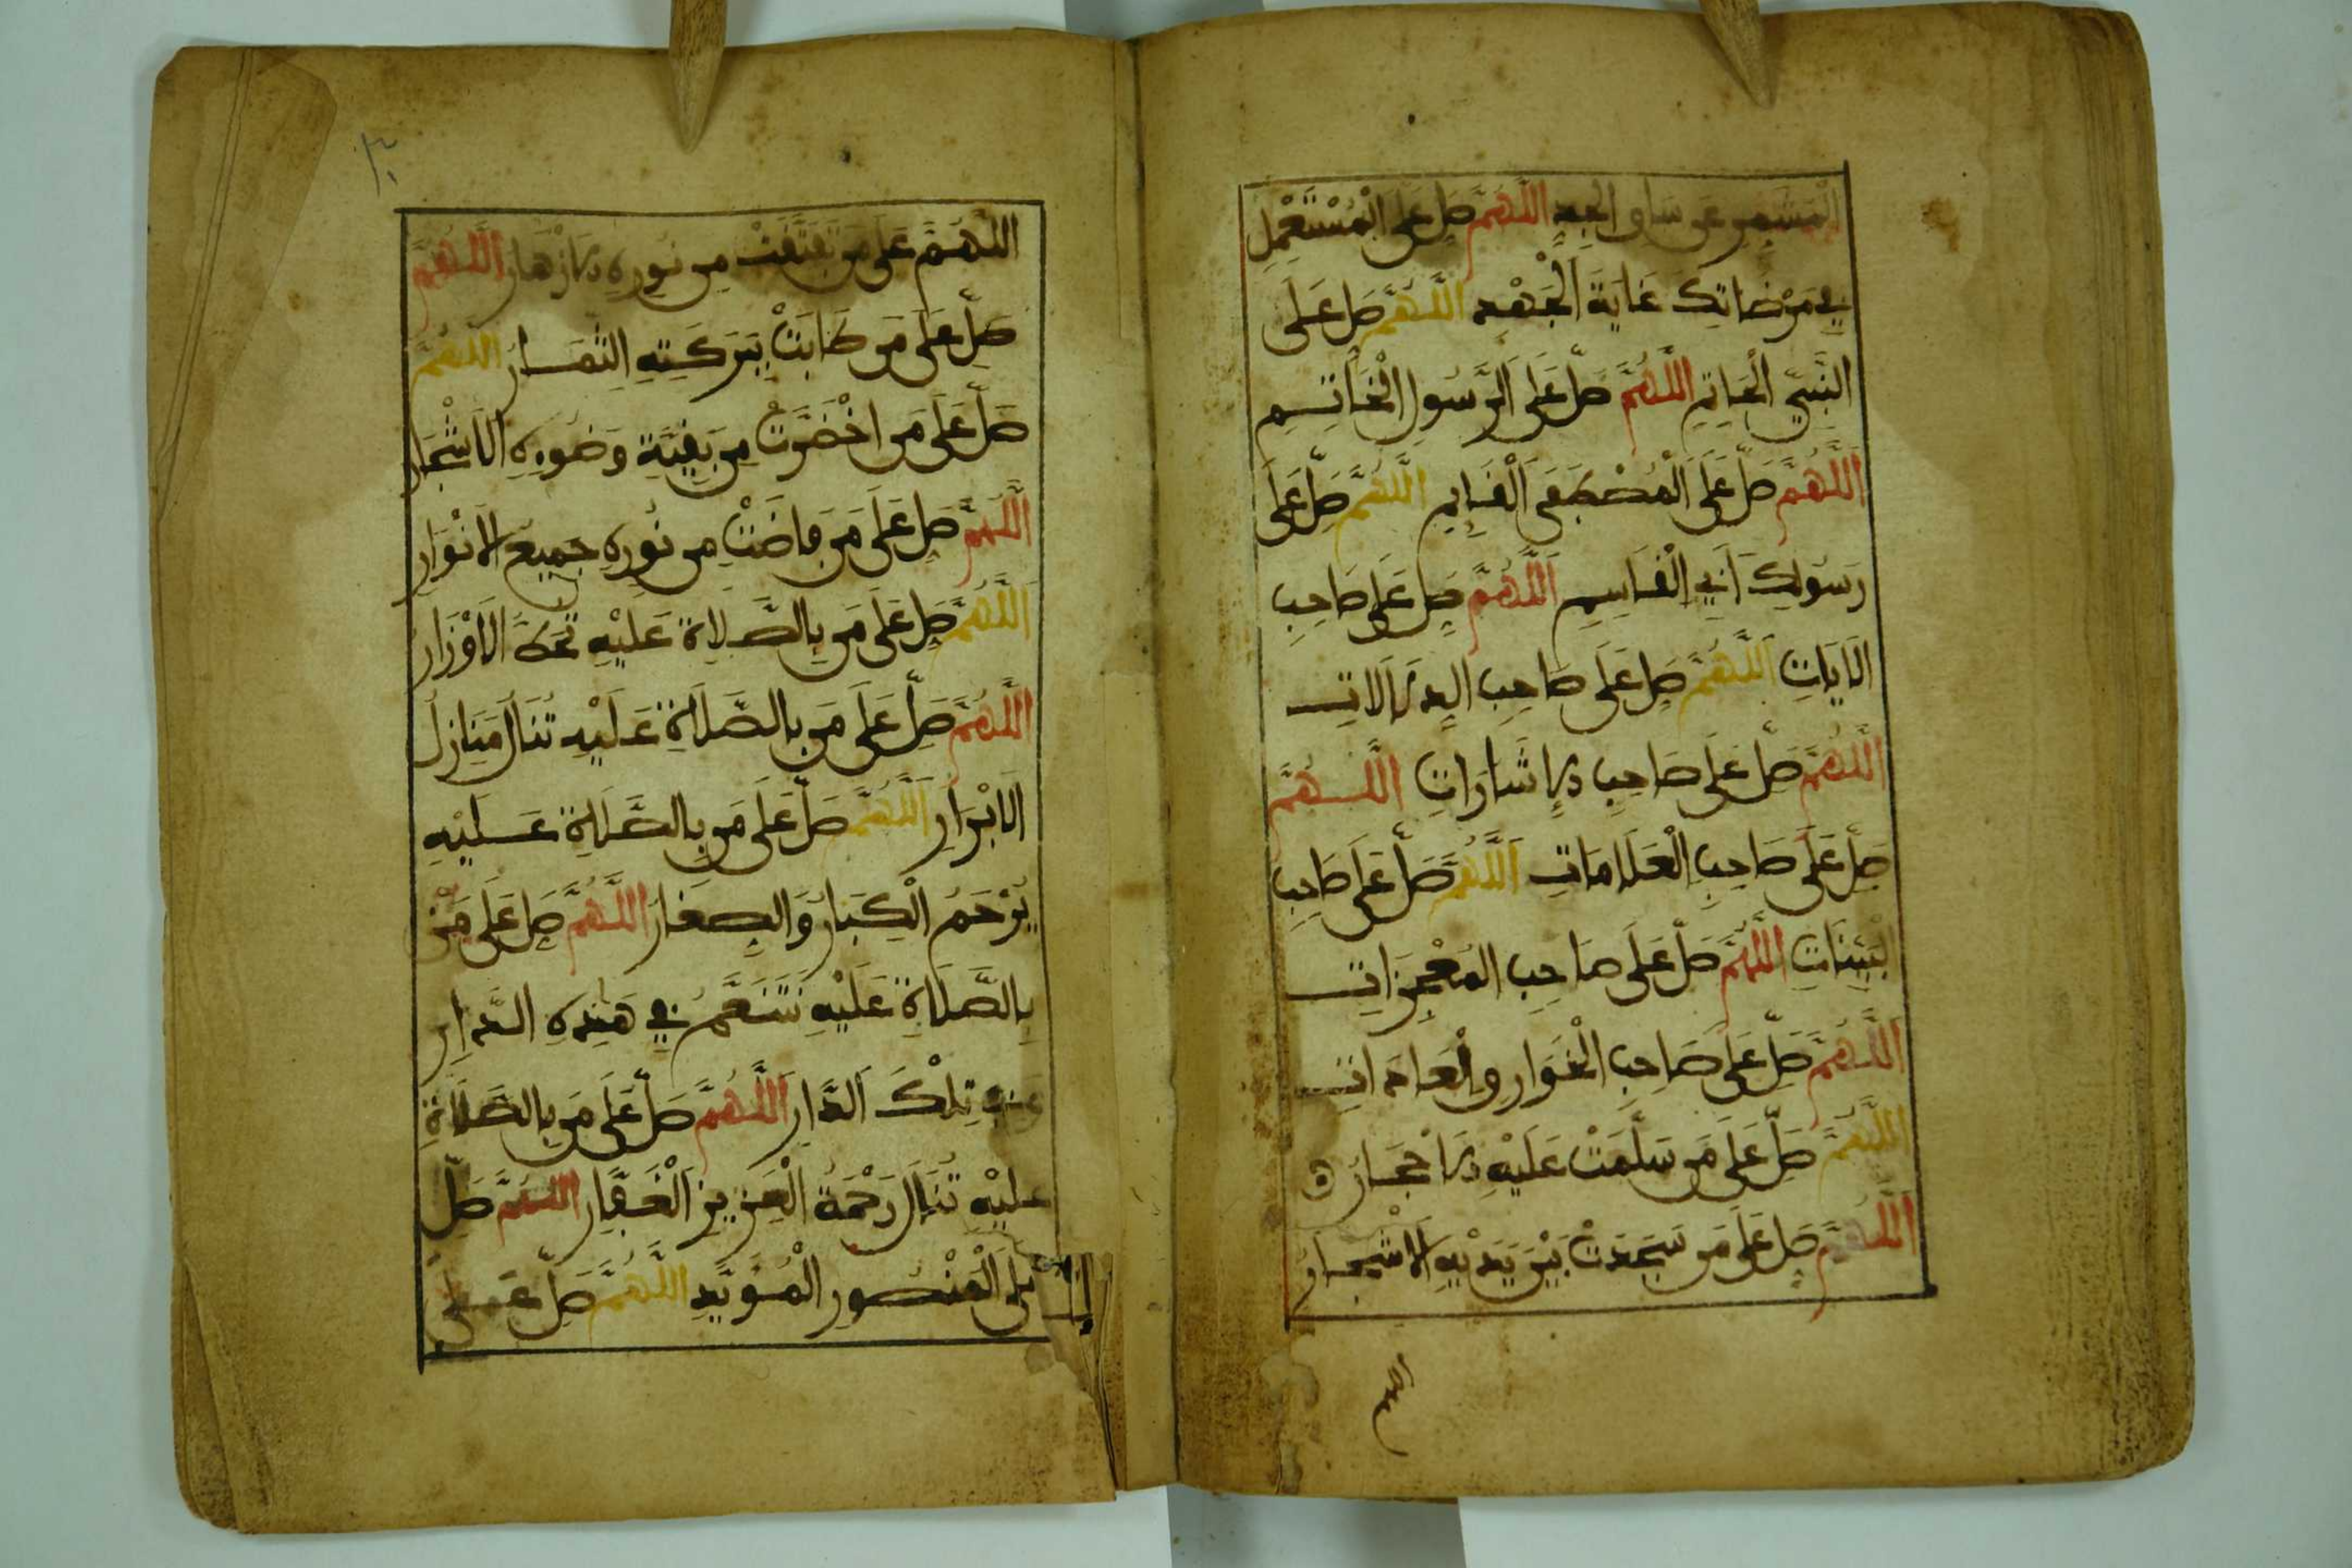 المشمر عن ساق الجد اللهم صل على المستعمل
في مرضاتك غاية الجهد اللهم صل على
النبي الخاتم اللهم صل على الرسول الخاتم
اللهم صل على المصطفى القايم اللهم صل على
رسولك أبي القاسم اللهم صل على صاحب
الايات اللهم صل على صاحب الدلالات
اللهم صل على صاحب الاشارات اللهم
صل على صاحب العلامات اللهم صل على صاحب
البينات اللهم صل على صاحب المعجزات
اللهم صل على صاحب الخوارو العادات
اللهم صل على من سلمت عليه الاحجار
اللهم صل على من سجدت بين يديه الاشجار
اللهم
٣٠
اللهم على من تفتقت من نوره الازهار اللهم
صل على من طابت ببركته الثمار اللهم
صل على من اخضرت من بقية وضوءه الاشجار
اللهم صل على من فاضت من نوره جميع الانوار
اللهم صل على من بالصلاة عليه تحط الاوزار
اللهم صل على من بالصلاة عليه تنال منازل
الابرار اللهم صل على من بالصلاة عليه
يرحم الكبار والصغار اللهم صل على من
بالصلاة عليه نتنعم في هذه الدار
وفي تلك الدار اللهم صل على من بالصلاة
عليه تنال رحمة العزيز الغفار اللهم صل
على المنصور المؤيد اللهم صل على